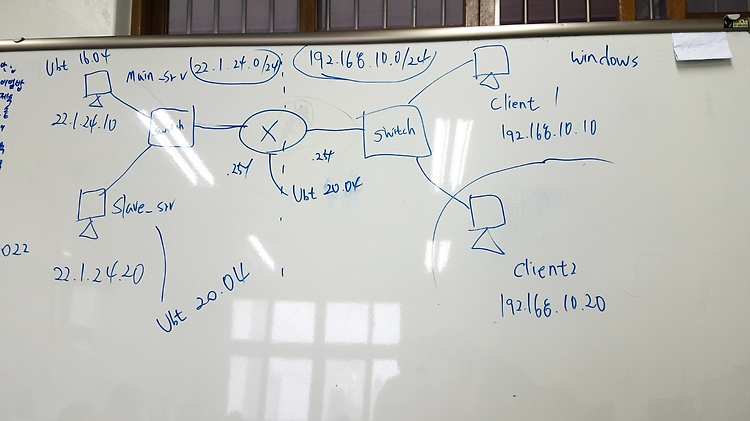 Ubt 16.04
Main_srv
22.1.24.0/24
192.168.10.0/24
windows
22.1.24.10
switch
X
switch
Client 1
192.168.10.10
.254
.254
Ubt 20.04
Slave_srv
22.1.24.20
Ubt 20.04
Client2
192.168.10.20
022